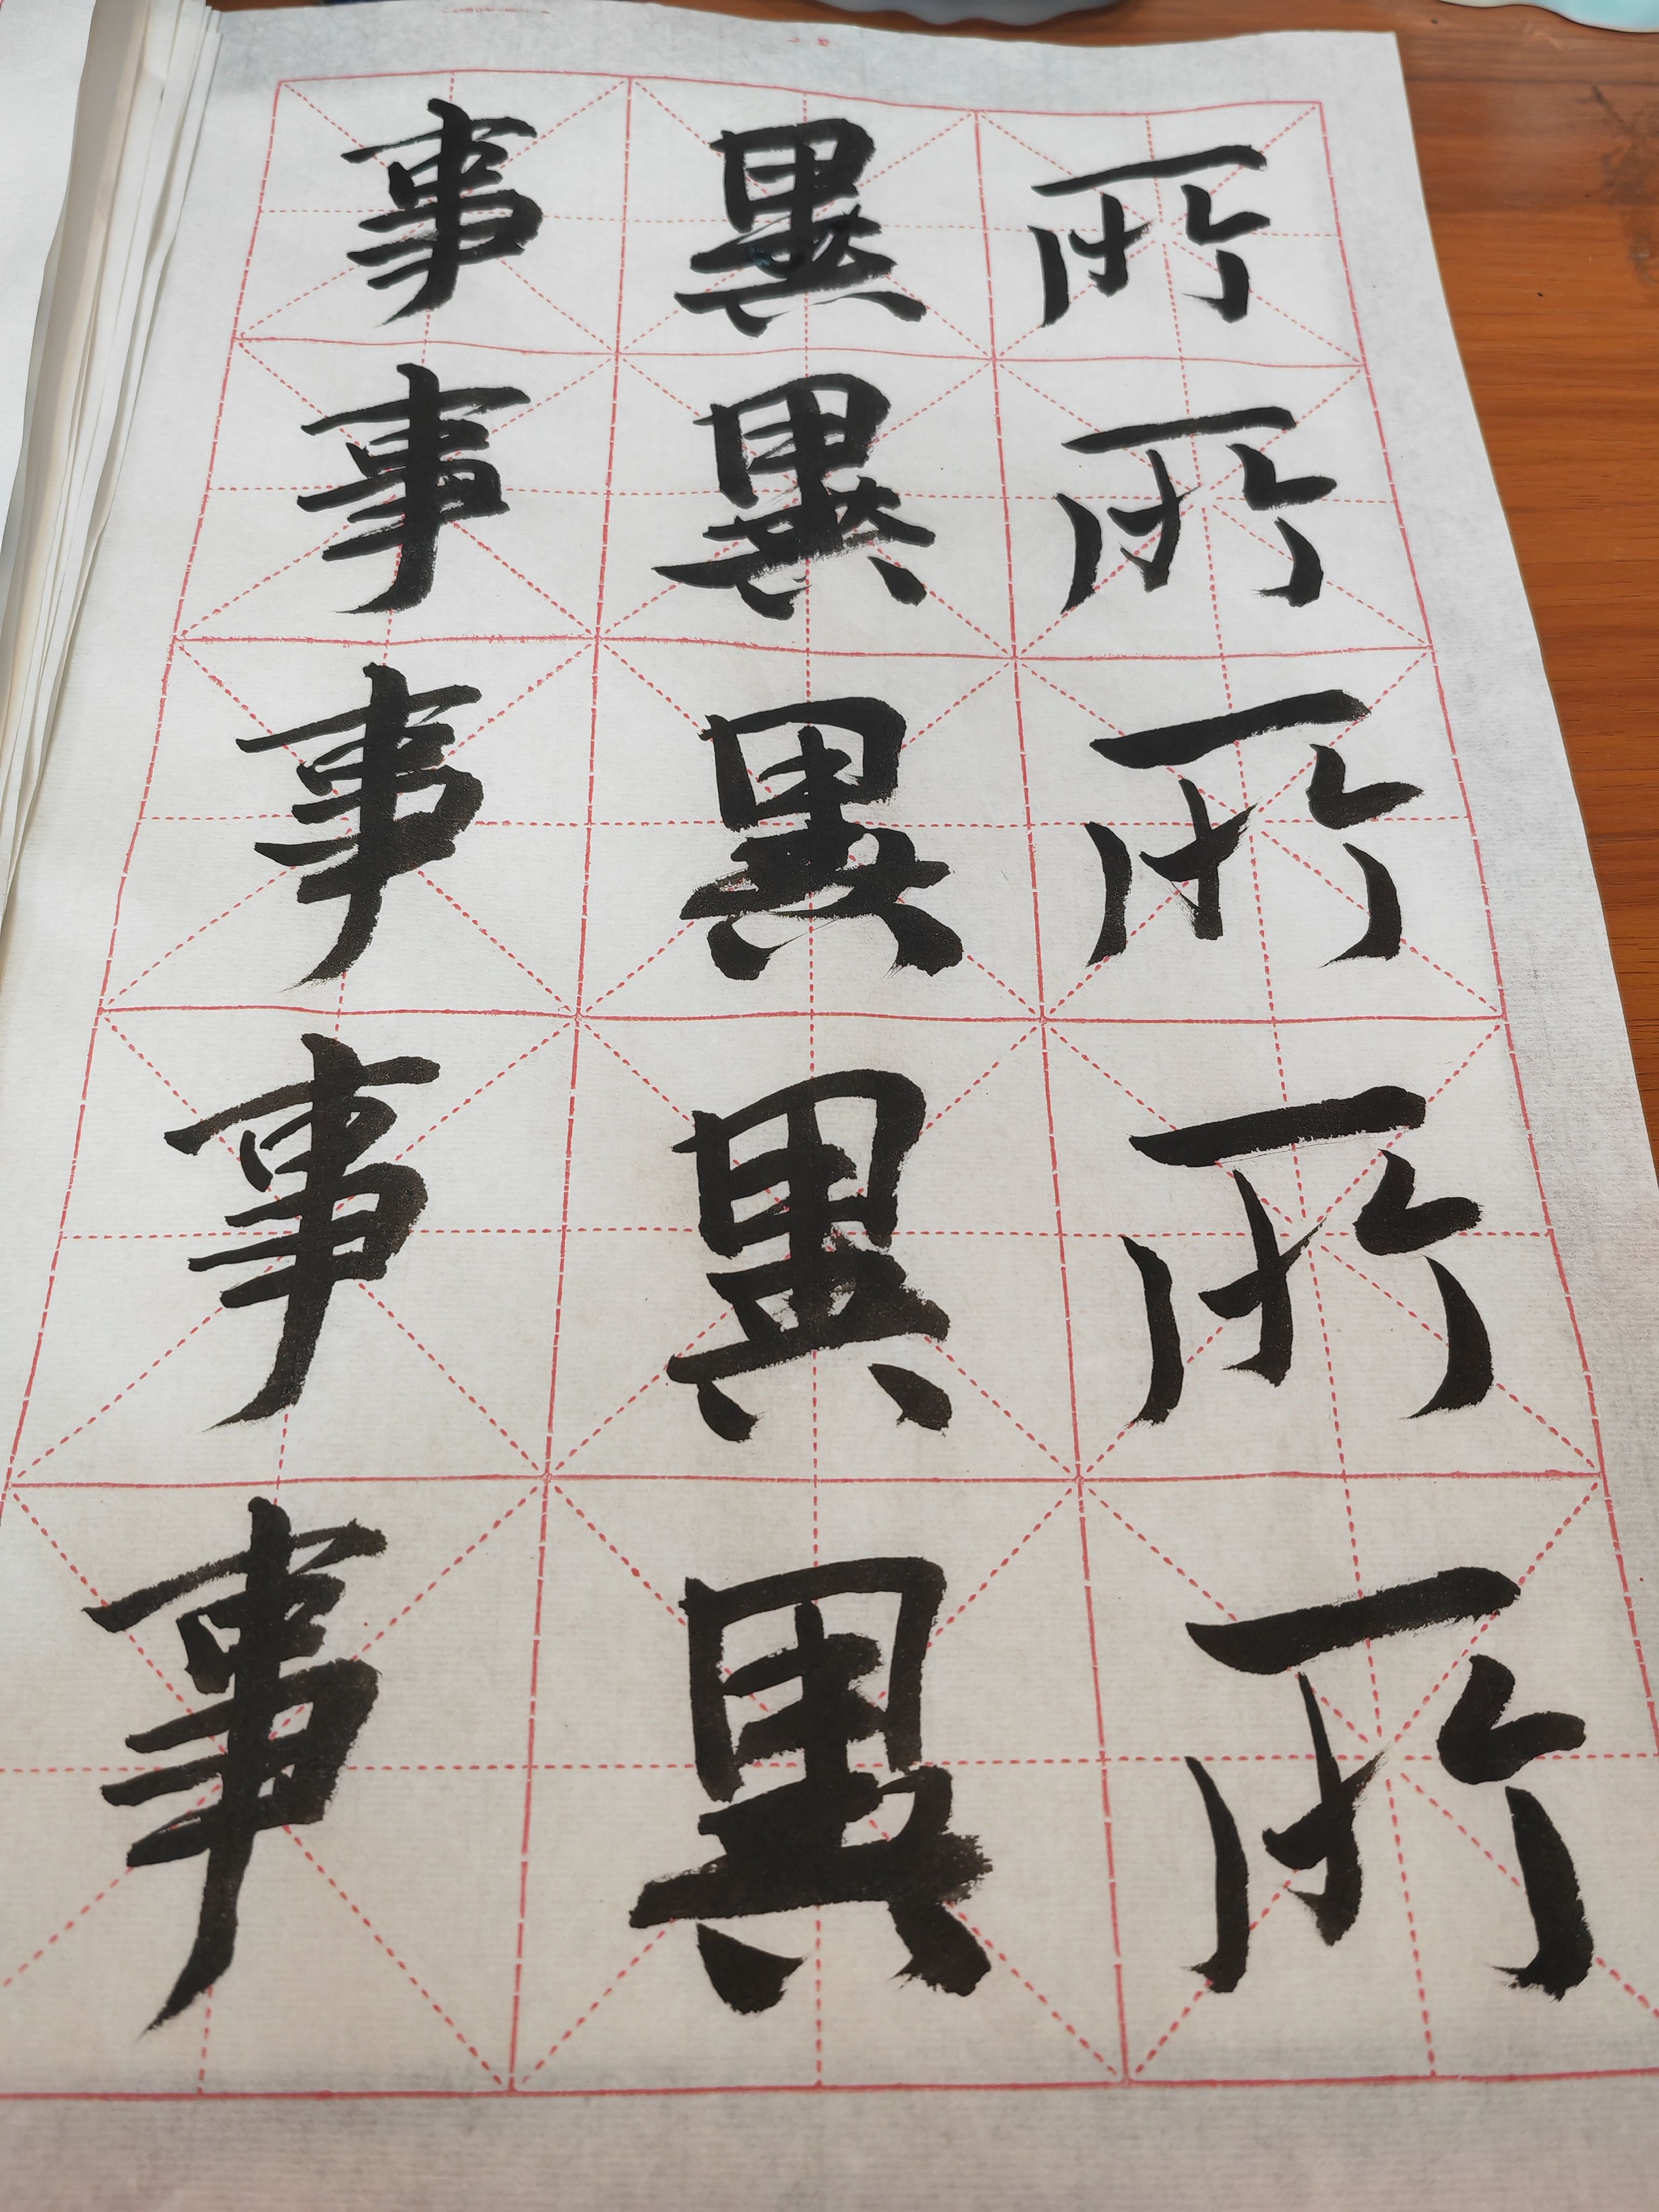 所所所所所
異異異異異
事事事事事